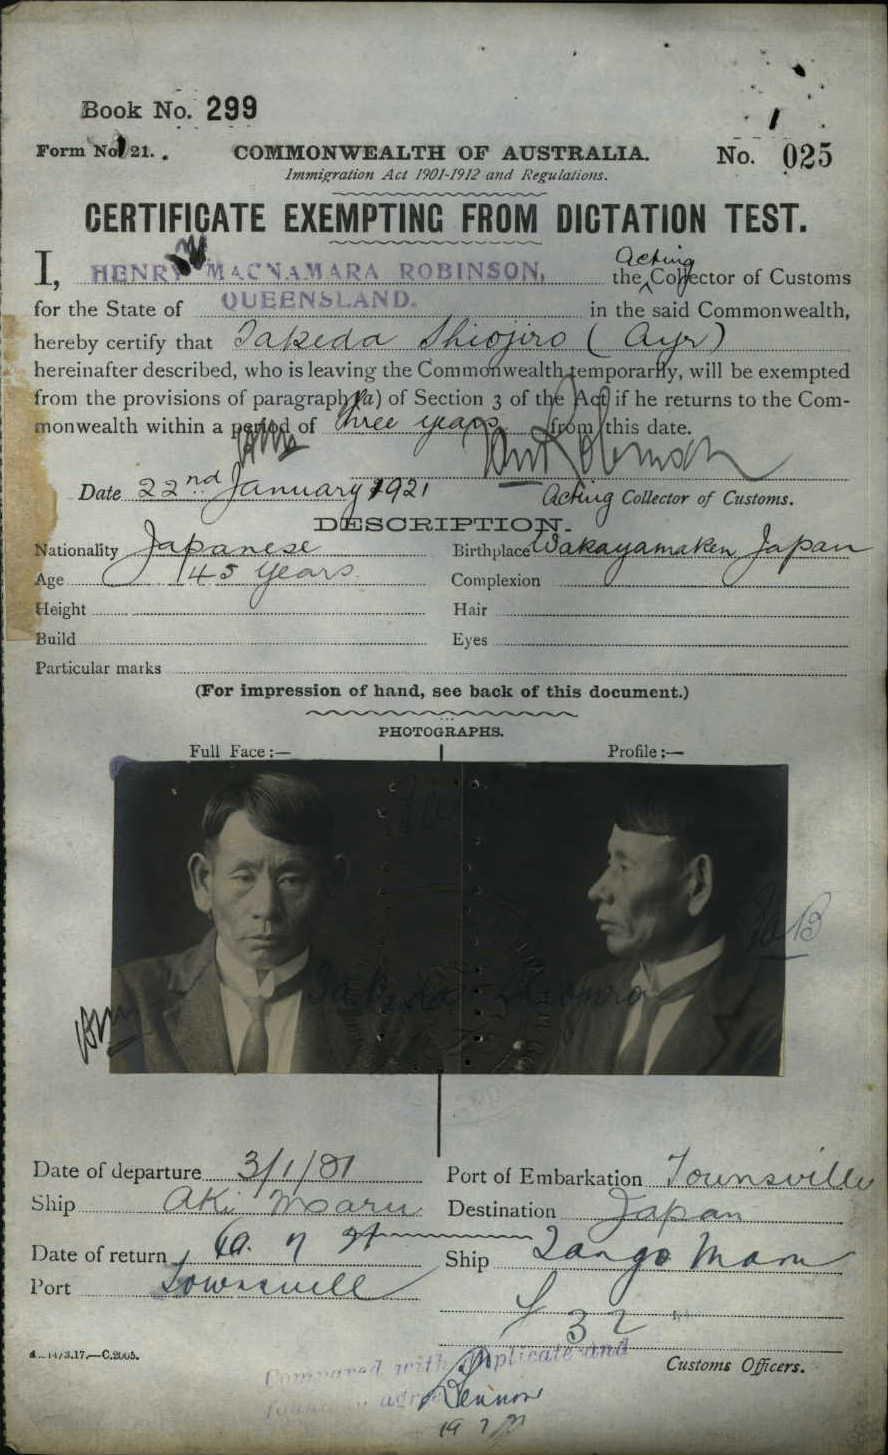 Book No. 299
1
Form No. 21.
COMMONWEALTH OF AUSTRALIA.
No. 025
Immigration Act 1901-1912 and Regulations.
CERTIFICATE EXEMPTING FROM DICTATION TEST.
I, HENRY MACNAMARA ROBINSON, the Acting Collector of Customs
for the State of QUEENSLAND. in the said Commonwealth,
hereby certify that Takeda Shiojiro (Ayr)
hereinafter described, who is leaving the Commonwealth temporarily, will be exempted
from the provisions of paragraph (a) of Section 3 of the Act if he returns to the Com-
monwealth within a period of three years from this date.
Date 22nd January 1921
Acting Collector of Customs.
DESCRIPTION.
Nationality Japanese
Birthplace Wakayamaken Japan
Age 45 years
Complexion
Height
Hair
Build
Eyes
Particular marks
(For impression of hand, see back of this document.)
PHOTOGRAPHS.
Full Face:—
Profile:—
Takeda Shiojiro
Date of departure
Port of Embarkation Townsville
Ship Aki Maru
Destination Japan
Date of return
Ship Tango Maru
Port Townsvill
32
Compared with duplicate and
Customs Officers.